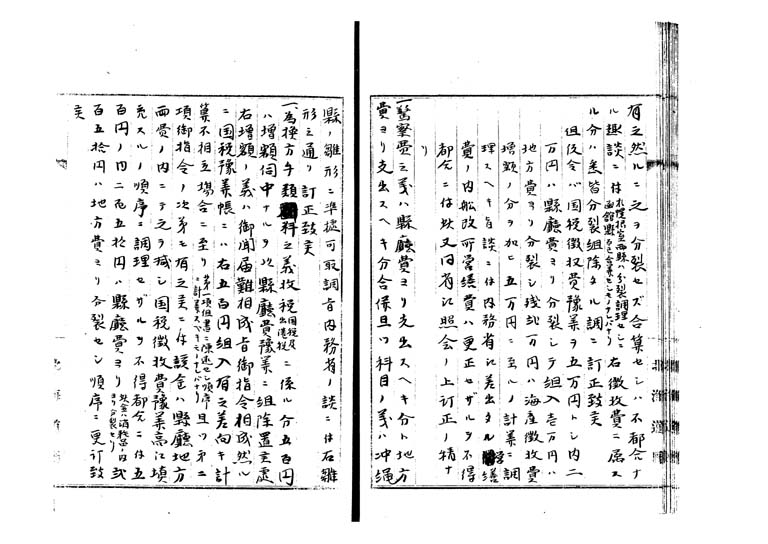 有之然ルニ之ヲ分裂セズ合算セシハ不都合ナ
ル趣談ニ付 右徴收費ニ屬ス
ル分ハ悉皆分裂組除タル調ニ訂正致矣
但假令バ国税徴收費豫算ヲ五万円トシ内二
万円ハ縣廳費ヨリ分裂シテ組入壱万円ハ
地方費ヨリ分裂シ残弐万円ハ海産徴收費
增額ノ分ヲ加ヒ五万円ニ至ルノ計算ニ調
理スヘキ旨談ニ付内務省ニ差出タル 繕
費ノ内船改所営繕費ハ更正セザルヲ不得
都合ニ付 又同省ニ照会ノ上訂正ノ積ナ
リ
一警察費之義ハ縣廳費ヨリ支出スヘキ分ト地方
費ヨリ支出スヘキ分合併且ツ科目ノ義ハ沖縄
縣ノ雛形ニ準據可取調旨内務省ノ談ニ付右雛
形之通リ訂正致矣
一為換方手類 科之義收税 国税及出港税 ニ係ル分五百円
ハ增額伺中ナルヲ以縣廳費豫算ニ組除置之處
右增額ノ義ハ御聞届難相成旨御指令相成然ル
ニ国税豫算帳ニハ右五百円組入有之差向キ計
算不相立場合ニ至リ 且ツ第二
項御指令ノ次第モ有之矣ニ付該金ハ縣廳地方
両費ノ内ニテ之ヲ減シ国税徴收費豫算高ニ填
充スルノ順序ニ調理セザルヲ不得都合ニ付五
百円ノ内二百五拾円ハ縣廳費ヨリ 弐
百五拾円ハ地方費ヨリ分裂セシ順序ニ更訂致
矣
北海道